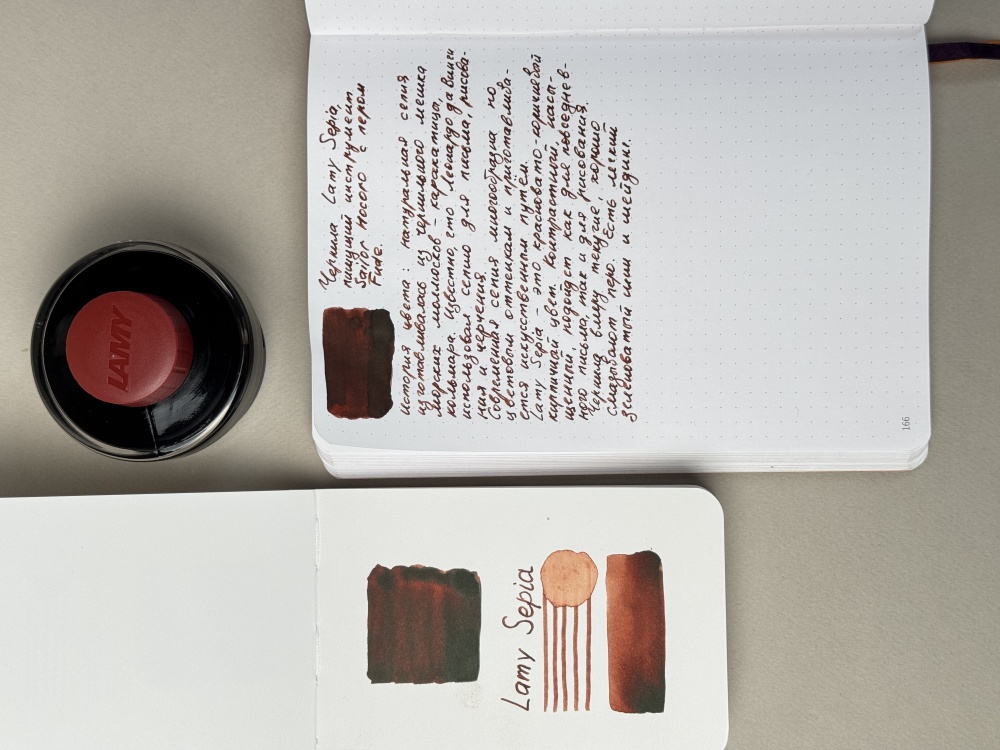 Чернила Lamy Sepia,
пишущий инструмент
Sailor Hocoro с пером
Fude.
история цвета: натуральная сепия
изготавливалась из чернильного мешка
морских моллюсков - каракатица,
кальмара. Известно, что Леонардо да Винчи
использовал сепию для письма, рисова-
ния и черчения.
Современная сепия многообразна по
цветовым оттенкам и приготавлива-
ется искусственным путём.
Lamy Sepia - это красновато-коричневый
кирпичный цвет. Контрастный, насы-
щенный, подойдет как для повседнев-
ного письма, так и для рисования.
Чернила в меру текучие, хорошо
смазывают перо. Есть легкий
зеленоватый шин и шейдинг.
166
LAMY
Lamy Sepia